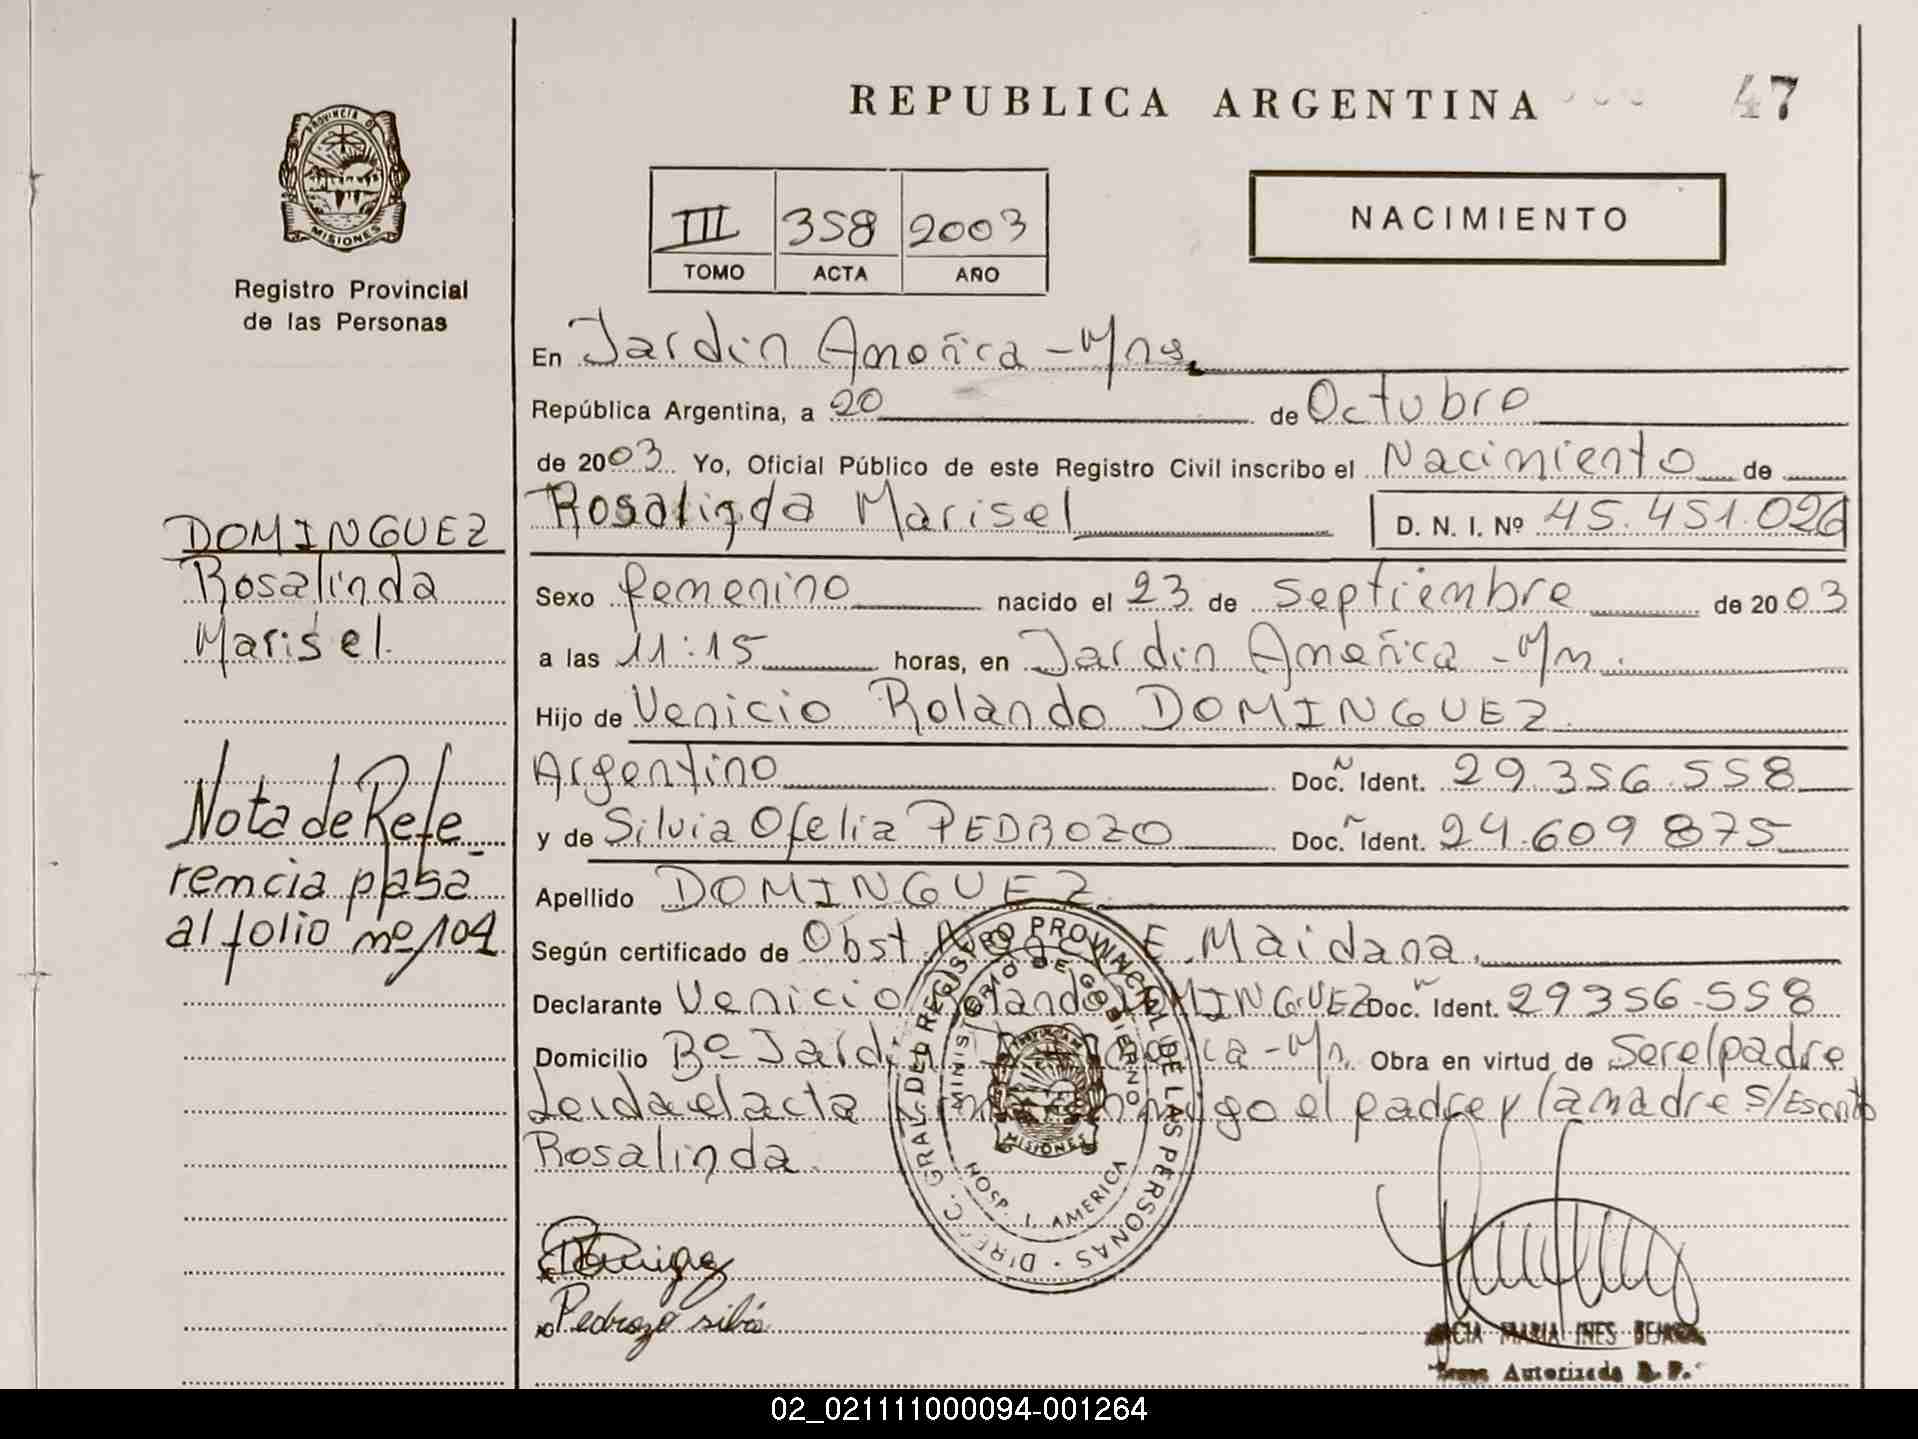 REPUBLICA ARGENTINA
47
PROVINCIA DE
MISIONES
Registro Provincial
de las Personas
III 358 2003
TOMO ACTA AÑO
NACIMIENTO
En Jardin America - Mns.
República Argentina, a 20 de Octubre
de 2003 Yo, Oficial Público de este Registro Civil inscribo el Nacimiento de
Rosalinda Marisel D. N. I. Nº 45.451.026
DOMINGUEZ
Rosalinda
Marisel.
Sexo femenino nacido el 23 de septiembre de 2003
a las 11:15 horas, en Jardin America - Mn.
Hijo de Venicio Rolando DOMINGUEZ
Argentino Doc. Ident. 29.356.558
y de Silvia Ofelia PEDROZO Doc. Ident. 24.609 875
Nota de Refe_
rencia pasa
al folio nº 104
Apellido DOMINGUEZ
Según certificado de Obst E. Maidana.
Declarante Venicio Rolando DOMINGUEZ Doc. Ident. 29356.558
Domicilio Bº Jardin America - Mn. Obra en virtud de Ser el padre
Leida el acta firma conmigo el padre y la madre s/Escrito
Rosalinda.
DIREC. GRAL. DEL REGISTRO PROVINCIAL DE LAS PERSONAS
MINISTERIO DE GOBIERNO
MISIONES
HOSP. J. AMERICA
Pedrozo silvia
MARIA INES
Autorizada R. P.
02_021111000094-001264